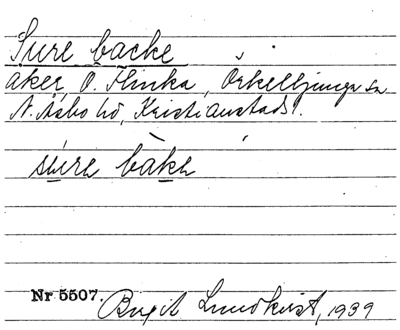 Sure backe
åker, O. Flinka, Örkelljunga sn
N. Åsbo hd, Kristianstads l.
sure bake
Nr 5507. Birgit Lundkvist, 1939